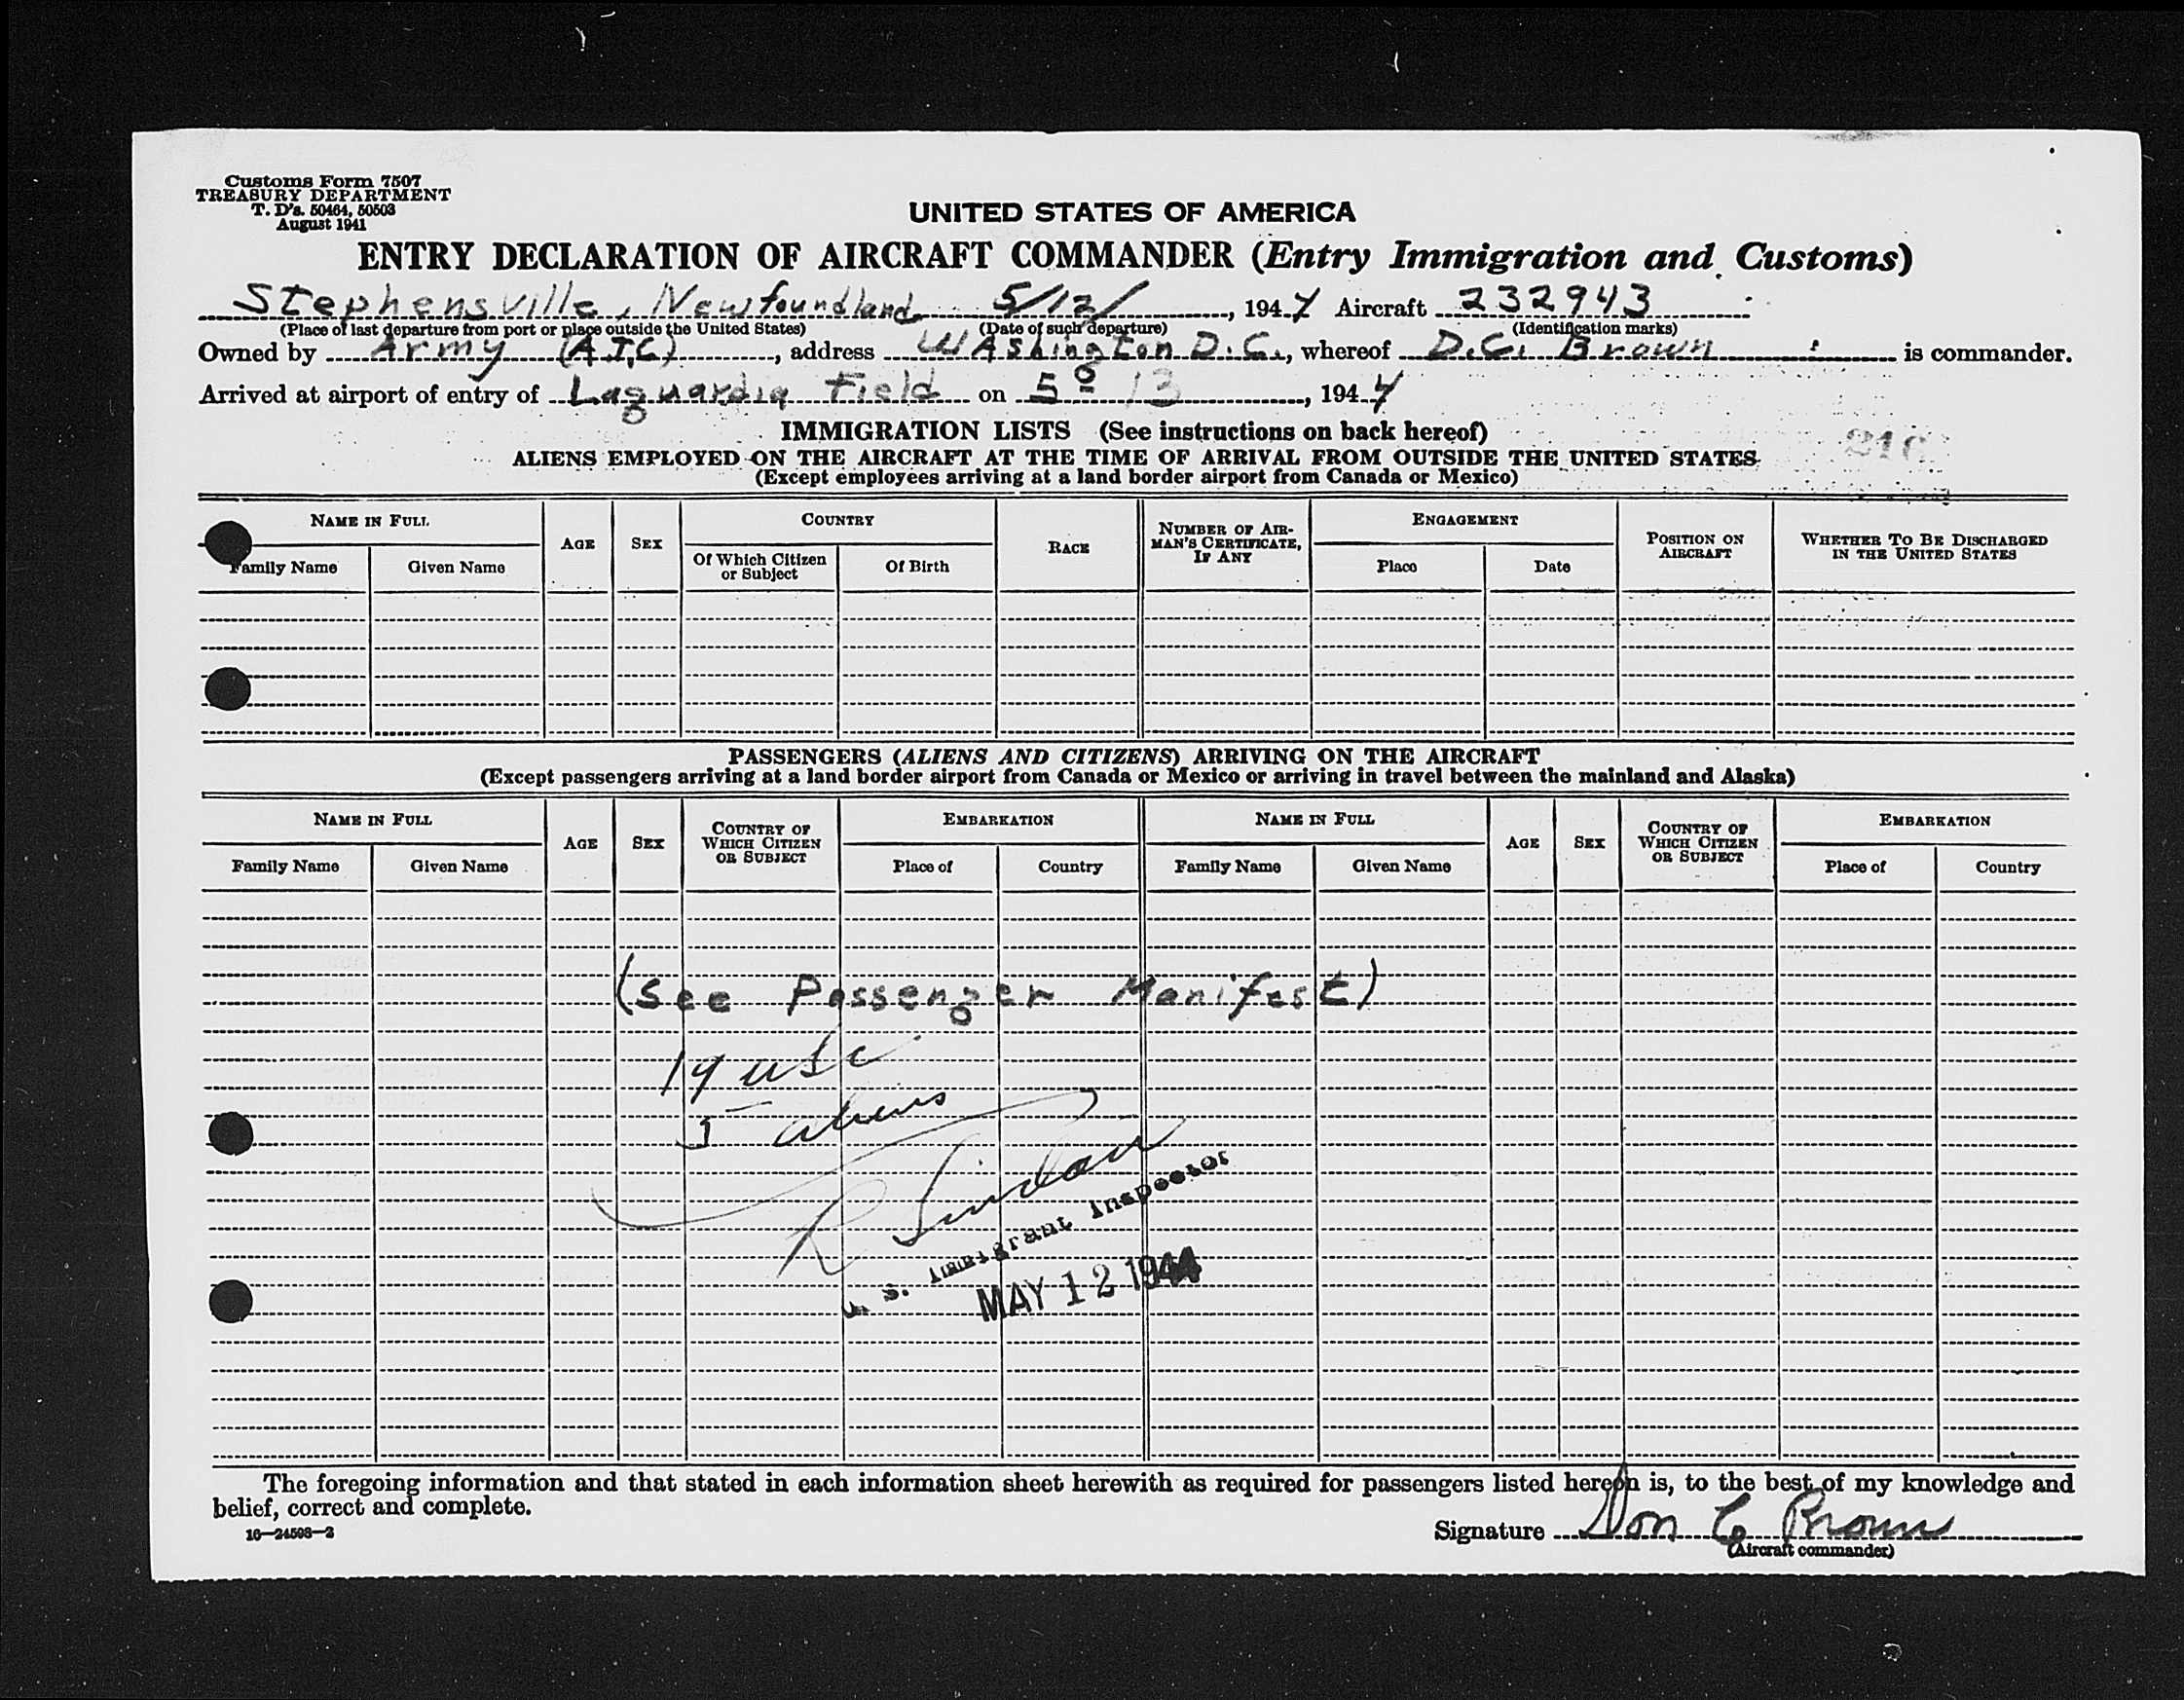 Customs Form 7507
TREASURY DEPARTMENT
T. D's. 50464, 50503
August 1941
UNITED STATES OF AMERICA
ENTRY DECLARATION OF AIRCRAFT COMMANDER (Entry Immigration and Customs)
Stephensville, Newfoundland 5/12/, 1944 Aircraft 232943
(Place of last departure from port or place outside the United States) (Date of such departure) (Identification marks)
Owned by Army (A.T.C), address WAshington D.C., whereof D.C. Brown is commander.
Arrived at airport of entry of Laguardia Field on 5 13, 1944
IMMIGRATION LISTS (See instructions on back hereof)
ALIENS EMPLOYED ON THE AIRCRAFT AT THE TIME OF ARRIVAL FROM OUTSIDE THE UNITED STATES
(Except employees arriving at a land border airport from Canada or Mexico)
NAME IN FULL AGE SEX COUNTRY RACE NUMBER OF AIRMAN'S CERTIFICATE, IF ANY ENGAGEMENT POSITION ON AIRCRAFT WHETHER TO BE DISCHARGED IN THE UNITED STATES
Family Name Given Name Of Which Citizen or Subject Of Birth Place Date
PASSENGERS (ALIENS AND CITIZENS) ARRIVING ON THE AIRCRAFT
(Except passengers arriving at a land border airport from Canada or Mexico or arriving in travel between the mainland and Alaska)
NAME IN FULL AGE SEX COUNTRY OF WHICH CITIZEN OR SUBJECT EMBARKATION NAME IN FULL AGE SEX COUNTRY OF WHICH CITIZEN OR SUBJECT EMBARKATION
Family Name Given Name Place of Country Family Name Given Name Place of Country
(See Passenger Manifest)
19 usc
5 aliens
U. S. Immigrant Inspector
MAY 12 1944
The foregoing information and that stated in each information sheet herewith as required for passengers listed hereon is, to the best of my knowledge and
belief, correct and complete.
16—24508—2
Signature Don C Brown
(Aircraft commander)